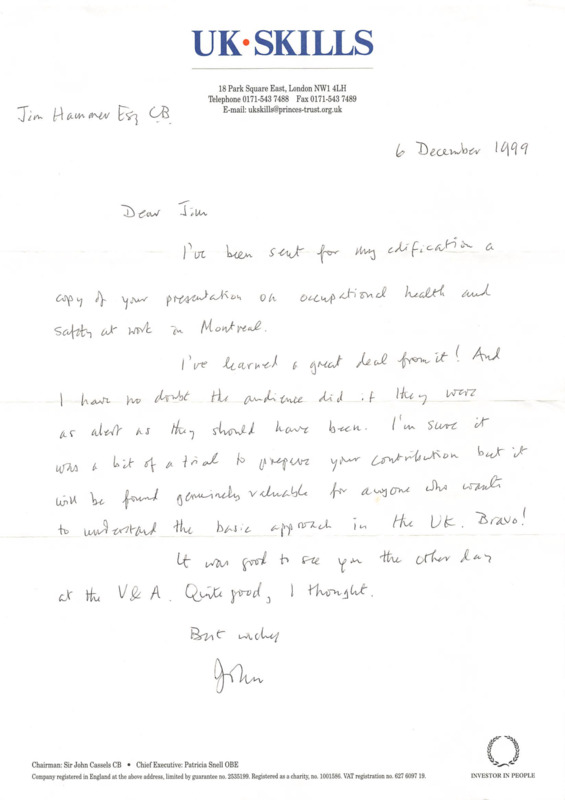 UK·SKILLS
18 Park Square East, London NW1 4LH
Telephone 0171-543 7488 Fax 0171-543 7489
E-mail: ukskills@princes-trust.org.uk
Jim Hammer Esq CB.
6 December 1999
Dear Jim
I've been sent for my edification a
copy of your presentation on occupational health and
safety at work in Montreal.
I've learned a great deal from it! And
I have no doubt the audience did if they were
as alert as they should have been. I'm sure it
was a bit of a trial to prepare your contribution but it
will be found genuinely valuable for anyone who wants
to understand the basic approach in the UK. Bravo!
It was good to see you the other day
at the V&A. Quite good, I thought.
Best wishes
John
Chairman: Sir John Cassels CB • Chief Executive: Patricia Snell OBE
Company registered in England at the above address, limited by guarantee no. 2535199. Registered as a charity, no. 1001586. VAT registration no. 627 6097 19.
INVESTOR IN PEOPLE